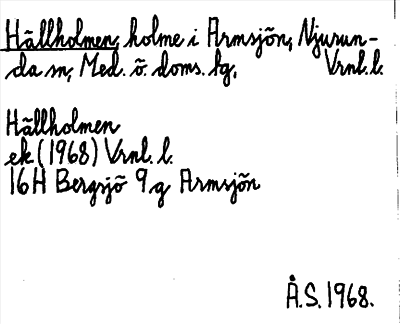 Hällholmen, holme i Armsjön, Njurun-
da sn, Med. ö. doms. bg, Vrnl. l.
Hällholmen
ek (1968) Vrnl. l.
16H Bergsjö 9 g Armsjön
Å.S. 1968.